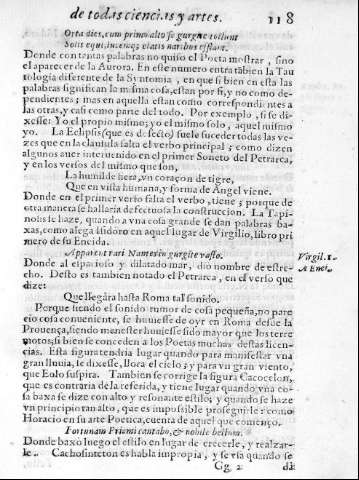 de todas ciencias y artes. 118
Orta dies, cum primo alto se gurgite tollunt
Solis equi, lucemq; elatis naribus efflant.
Donde con tantas palabras no quiso el Poeta mostrar, sino
el aparecer de la Aurora. En este numero entra tãbien la Tau
tologia diferente de la Syntomia, en que si bien en esta las
palabras significan la misma cosa, estan por si, y no como de-
pendientes; mas en aquella estan como correspondientes a
las otras, y casi como parte del todo. Por exemplo, si se di-
xesse: Yo el propio mismo; yo el mismo solo, aquel mismo
yo. La Eclipsis (que es defecto) suele suceder todas las ve-
zes que en la clausula falta el verbo principal; como dizen
algunos auer interuenido en el primer Soneto del Petrarca,
y en los versos del mismo que son,
La humilde fiera, vn coraçon de tigre,
Que en vista humana, y forma de Angel viene.
Donde en el primer verso falta el verbo, tiene; porque de
otra manera se hallaria defectuosa la construccion. La Tapi-
nosis se haze, quando a vna cosa grande se dan palabras ba-
xas, como alega Isidoro en aquel lugar de Virgilio, libro pri
mero de su Eneida.
Apparent rari Nantes in gurgite vasto. Virgil. 1.
Donde al espacioso y dilatado mar, dio nombre de estre- Æneid.
cho. Desto es tambien notado el Petrarca, en el verso que
dize:
Que llegàra hasta Roma tal sonido.
Porque siendo el sonido rumor de cosa pequeña, no pare
cio cosa conueniente, se huuiesse de oyr en Roma desde la
Prouença, siendo menester huuiesse sido mayor que los terre
motos; si bien se conceden a los Poetas muchas destas licen-
cias. Esta figura tendria lugar quando para manifestar vna
gran lluuia, le dixesse, llora el cielo; y para vn grande viento,
que Eolo suspira. Tambien se corrige la figura Cacocelon,
que es contraria de la referida, y tiene lugar quando vna co-
sa baxa se dize con alto y resonante estilo; y quando se haze
vn principio tan alto, que es impossible proseguirle: como
Horacio en su arte Poetica, cuenta de aquel que començò.
Fortunam Priami cantabo, & nobile bellum.
Donde baxò luego el estilo en lugar de crecerle, y realzar-
le. Cachosinteton es habla impropia, y se vîa quando se
Gg 2 dà